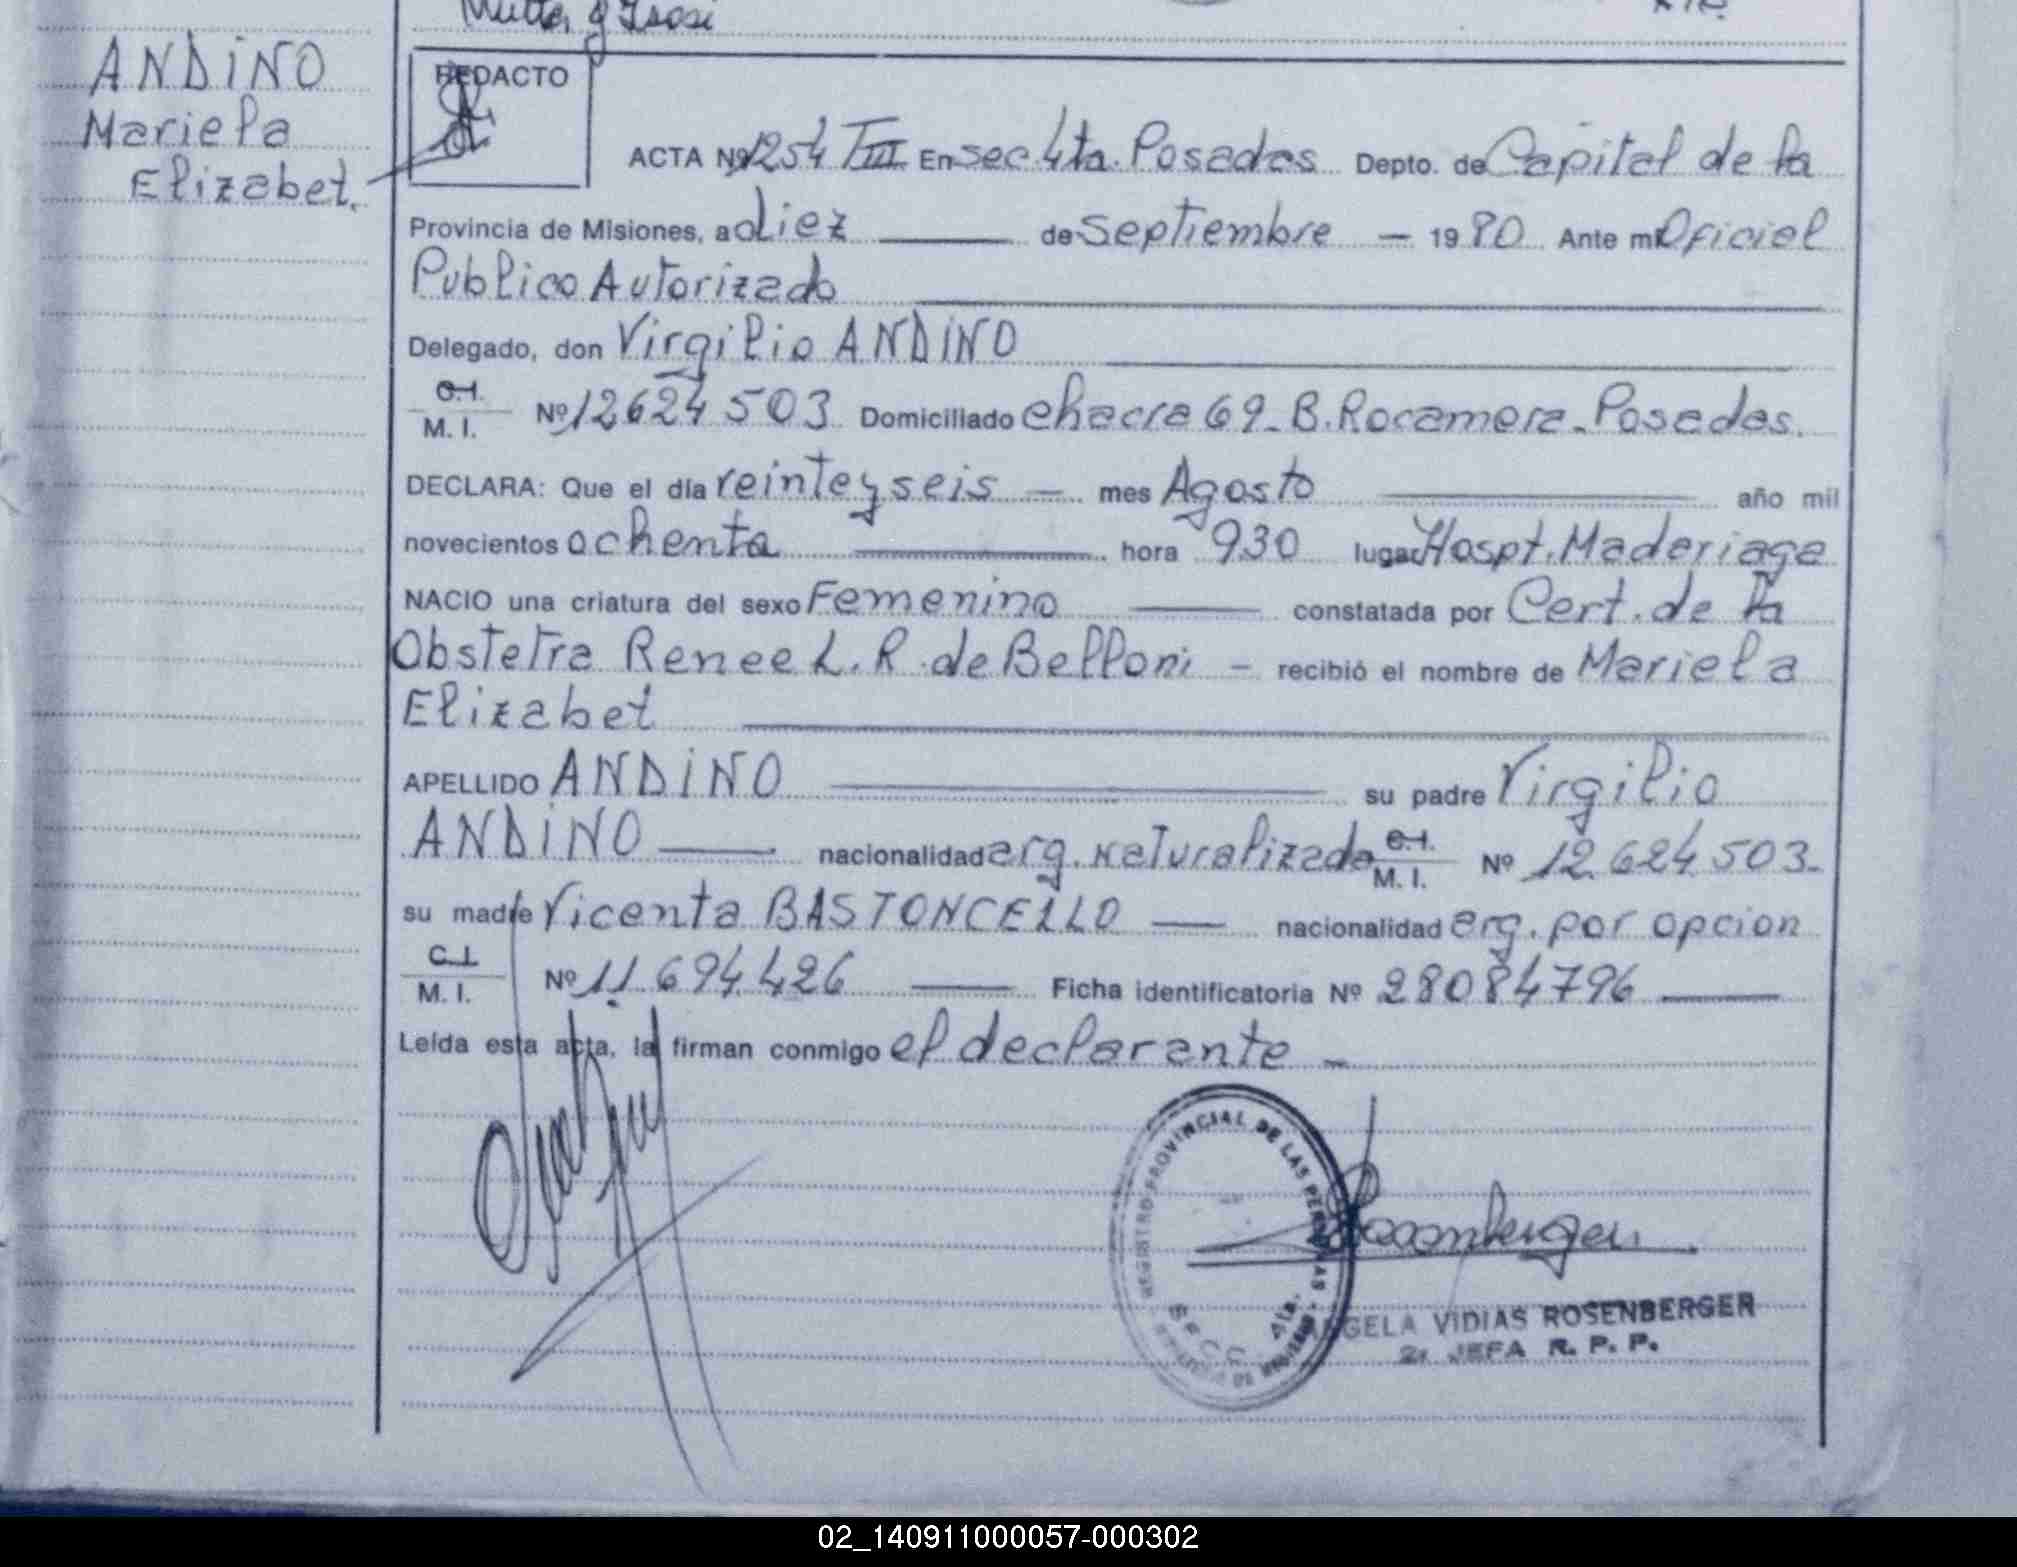 ANDINO
Mariela
Elizabet.
REDACTO
ACTA Nº 1254 TIII En sec 4ta. Posadas Depto. de Capital de la
Provincia de Misiones, a diez de septiembre 1980 Ante mi Oficial
Publico Autorizado
Delegado, don Virgilio ANDINO
C.I.
M. I. Nº 12624503 Domiciliado chacra 69 - B. Rocamora - Posadas.
DECLARA: Que el día veinteyseis mes Agosto año mil
novecientos ochenta hora 930 lugar Hospt. Madariaga
NACIO una criatura del sexo Femenino constatada por Cert. de la
Obstetra Renee L. R. de Belloni - recibió el nombre de Mariela
Elizabet
APELLIDO ANDINO su padre Virgilio
ANDINO nacionalidad arg. naturalizado C.I. M. I. Nº 12.624.503-
su madre Vicenta BASTONCELLO nacionalidad arg. por opcion
C.I.
M. I. Nº 11.694.426 Ficha identificatoria Nº 28084796
Leída esta acta, la firman conmigo el declarante -
REGISTRO PROVINCIAL DE LAS PERSONAS
SECC. 4ta.
Rosenberger
ANGELA VIDIAS ROSENBERGER
2ª JEFA R. P. P.
02_140911000057-000302